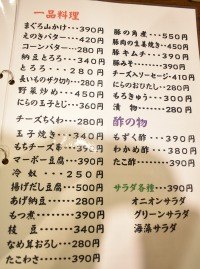 一品料理
まぐろ山かけ・・・390円
えのきバター・・・420円
コーンバター・・・280円
納豆とろろ・・・340円
とろろ・・・・・280円
長いものザク切り・・280円
野菜炒め・・・・450円
にらの玉子とじ・・360円
チーズちくわ・・・280円
玉子焼き・・・・340円
もちチーズ春巻・・・390円
マーボー豆腐・・・390円
冷奴・・・・250円
揚げだし豆腐・・・500円
あげ納豆・・・・280円
もつ煮・・・・・390円
枝豆・・・・・340円
なめ茸おろし・・280円
たこわさ・・・・390円
豚の角煮・・・・550円
豚肉の生姜焼き・・・450円
豚キムチ・・・・390円
豚みそ・・・・・390円
チーズ入りソーセージ・・410円
にらのおひたし・・・280円
もろきゅう・・・300円
漬物・・・・・280円
酢の物
もずく酢・・・390円
わかめ酢・・・380円
たこ酢・・・・390円
サラダ各種・・・390円
オニオンサラダ
グリーンサラダ
海藻サラダ